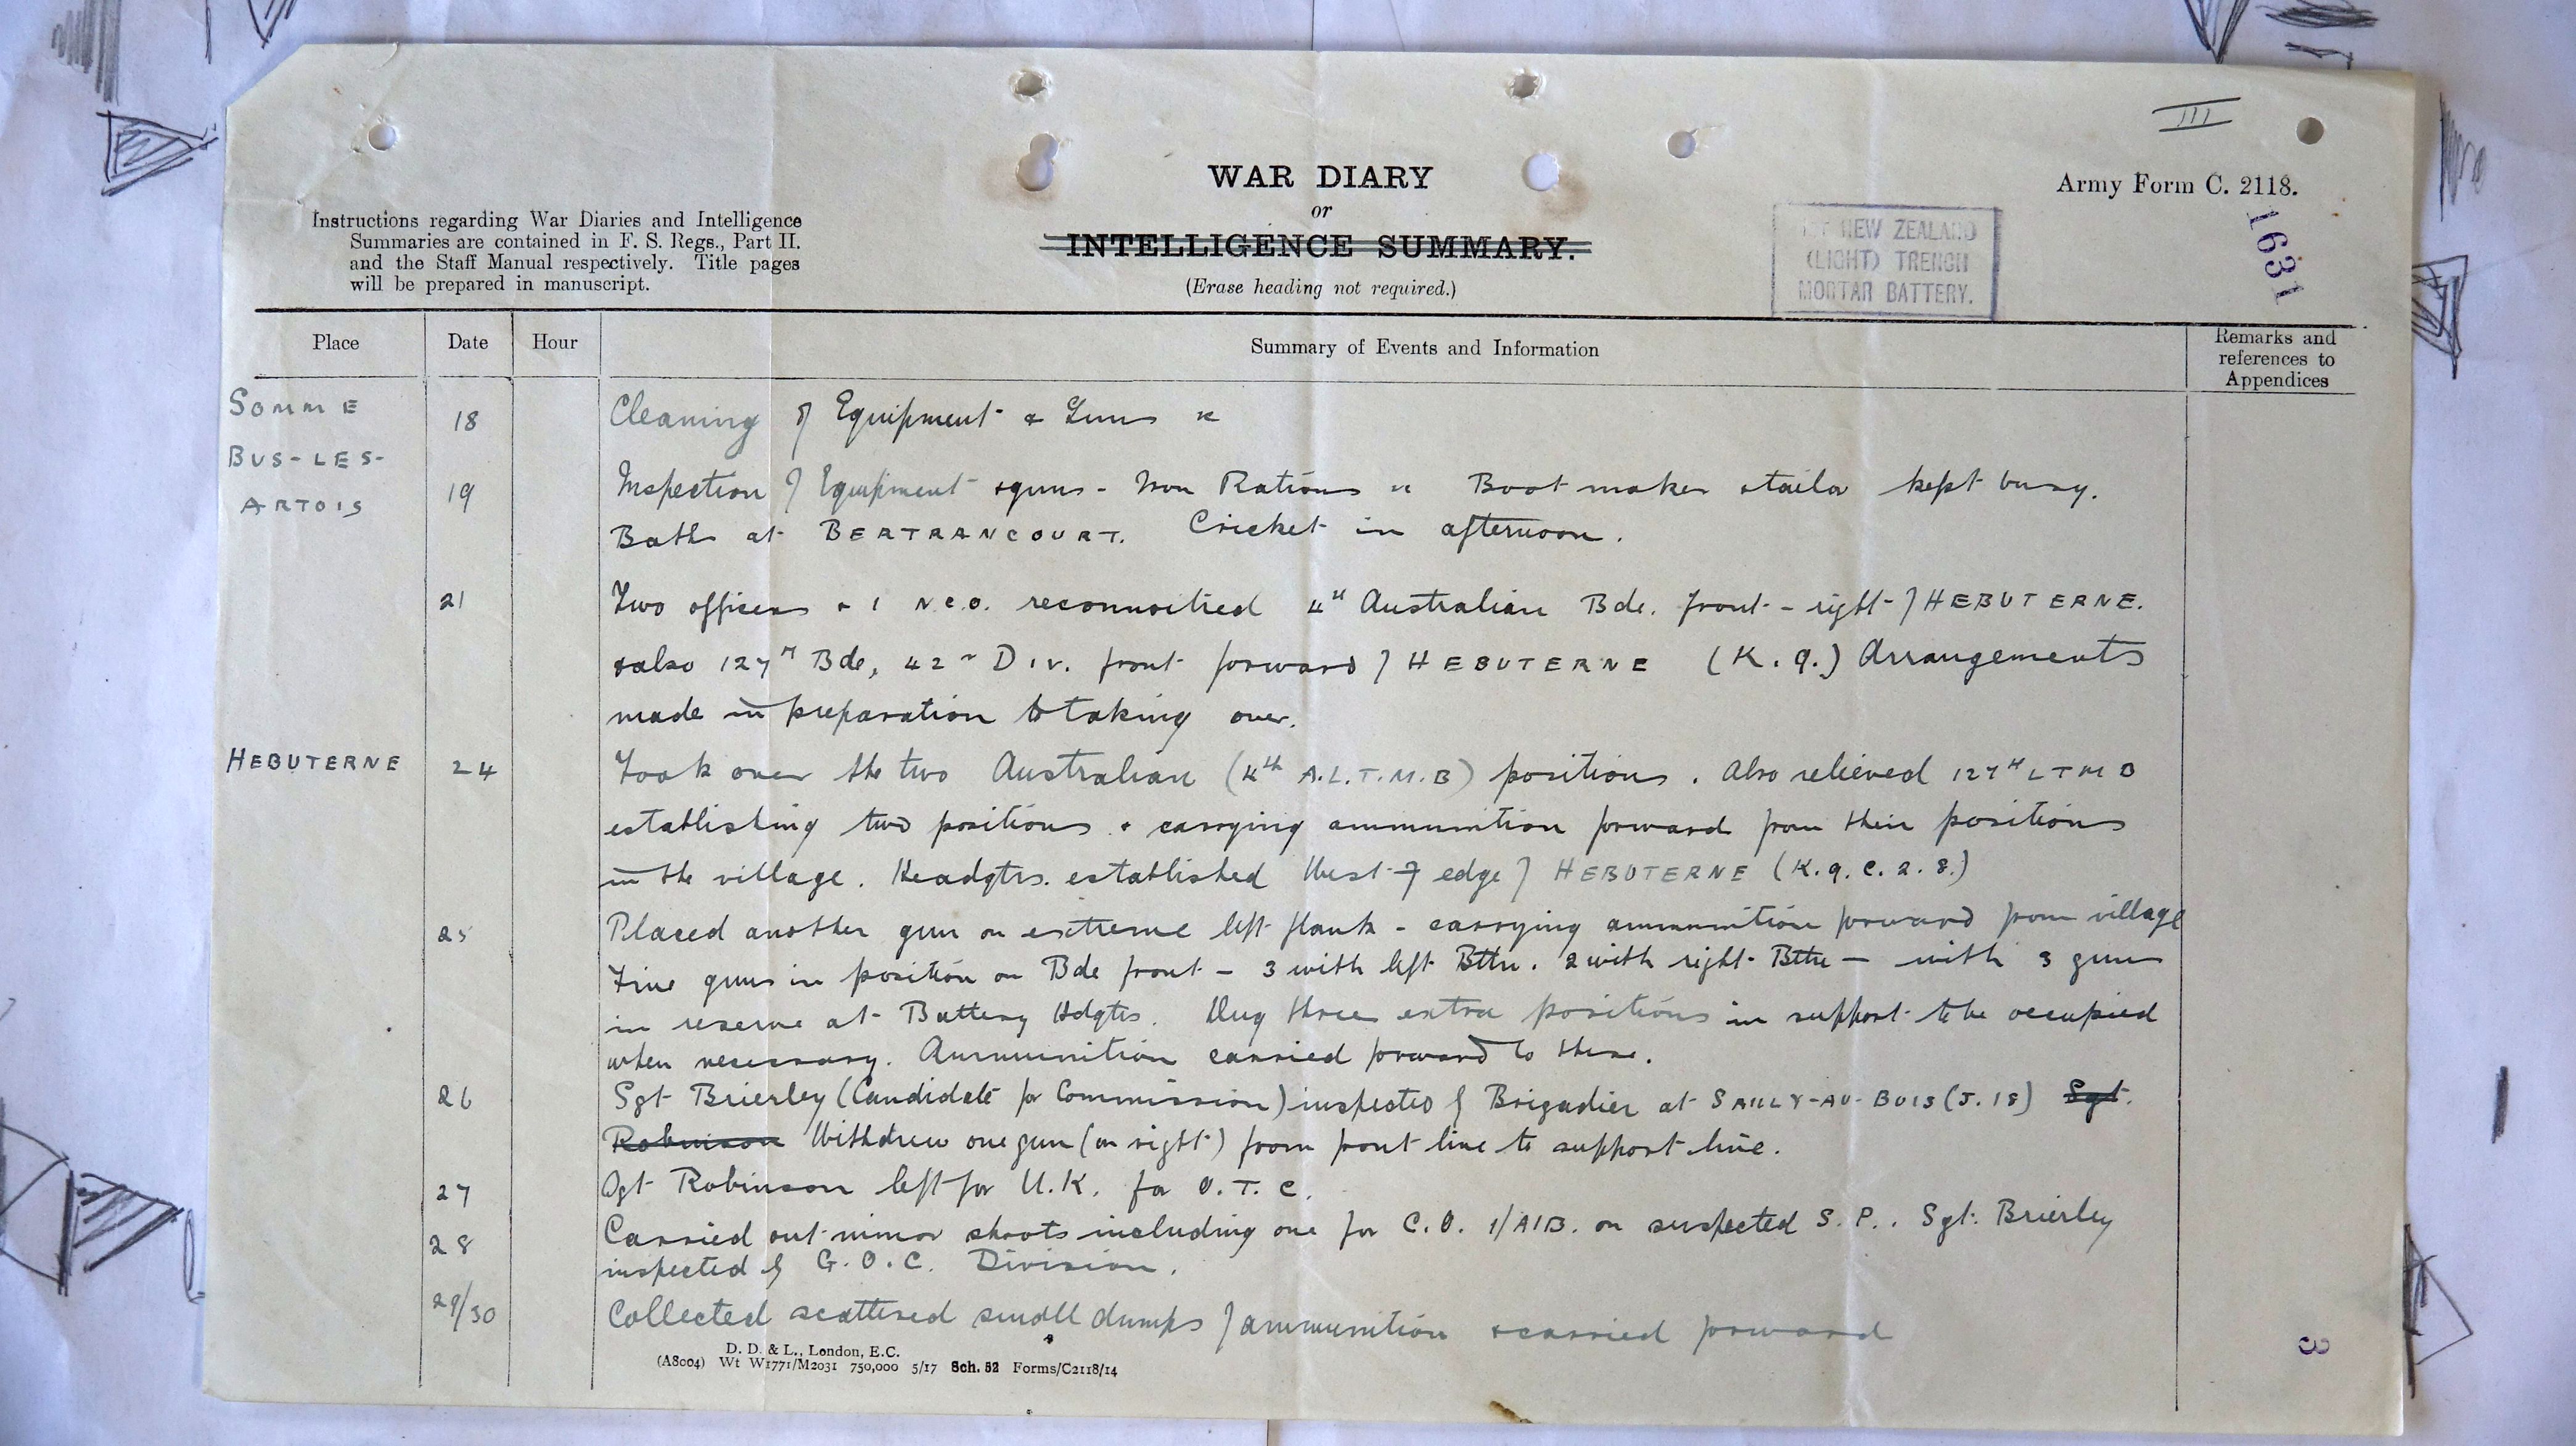 III
Army Form C. 2118.
1631
WAR DIARY
or
INTELLIGENCE SUMMARY.
(Erase heading not required.)
Instructions regarding War Diaries and Intelligence
Summaries are contained in F. S. Regs., Part II.
and the Staff Manual respectively. Title pages
will be prepared in manuscript.
1ST NEW ZEALAND
(LIGHT) TRENCH
MORTAR BATTERY.
Place Date Hour Summary of Events and Information Remarks and
references to
Appendices
SOMME
BUS-LES-
ARTOIS
18 Cleaning of Equipment & Guns &c
19 Inspection of Equipment & guns - Iron Rations &c Boot maker & tailor kept busy.
Baths at BERTRANCOURT. Cricket in afternoon.
21 Two officers & 1 N.C.O. reconnoitred 4th Australian Bde. front - right of HEBUTERNE.
& also 127th Bde, 42nd DIV. front forward of HEBUTERNE (K.9.) Arrangements
made in preparation to taking over.
HEBUTERNE 24 Took over the two Australian (4th A.L.T.M.B) positions. Also relieved 127th LTMB
establishing two positions & carrying ammunition forward from their positions
in the village. Headqtrs. established West of edge of HEBUTERNE (K.9.C.2.8.)
25 Placed another gun on extreme left flank - carrying ammunition forward from village
Five guns in position on Bde front - 3 with left Bttn. 2 with right Bttn - with 3 guns
in reserve at Battery Hdqtrs. Dug three extra positions in support to be occupied
when necessary. Ammunition carried forward to these.
26 Sgt Brierley (Candidate for Commission) inspected by Brigadier at SAILLY-AU-BOIS (J.18) Sgt.
Robinson Withdrew one gun (on right) from front line to support line.
27 Sgt Robinson left for U.K. for O.T.C.
28 Carried out minor shoots including one for C.O. 1/AIB. on suspected S.P.. Sgt. Brierley
inspected by G.O.C. Division.
29/30 Collected scattered small dumps of ammunition & carried forward
D. D. & L., London, E.C.
(A8004) Wt W1771/M2031 750,000 5/17 Sch. 52 Forms/C2118/14
3